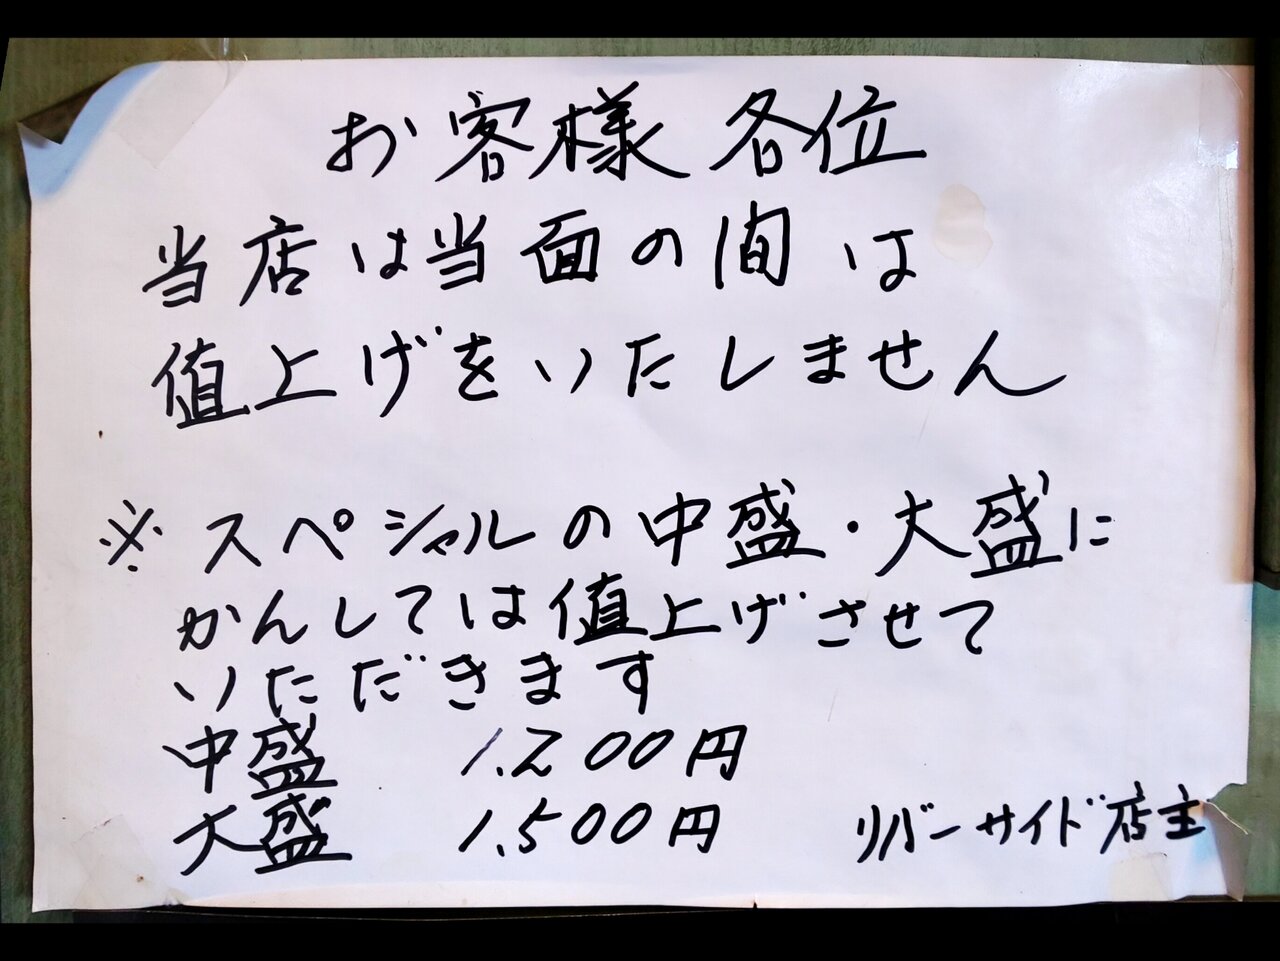 お客様各位
当店は当面の間は
値上げをいたしません
※スペシャルの中盛・大盛に
かんしては値上げさせて
いただきます
中盛 1.200円
大盛 1.500円
リバーサイド店主